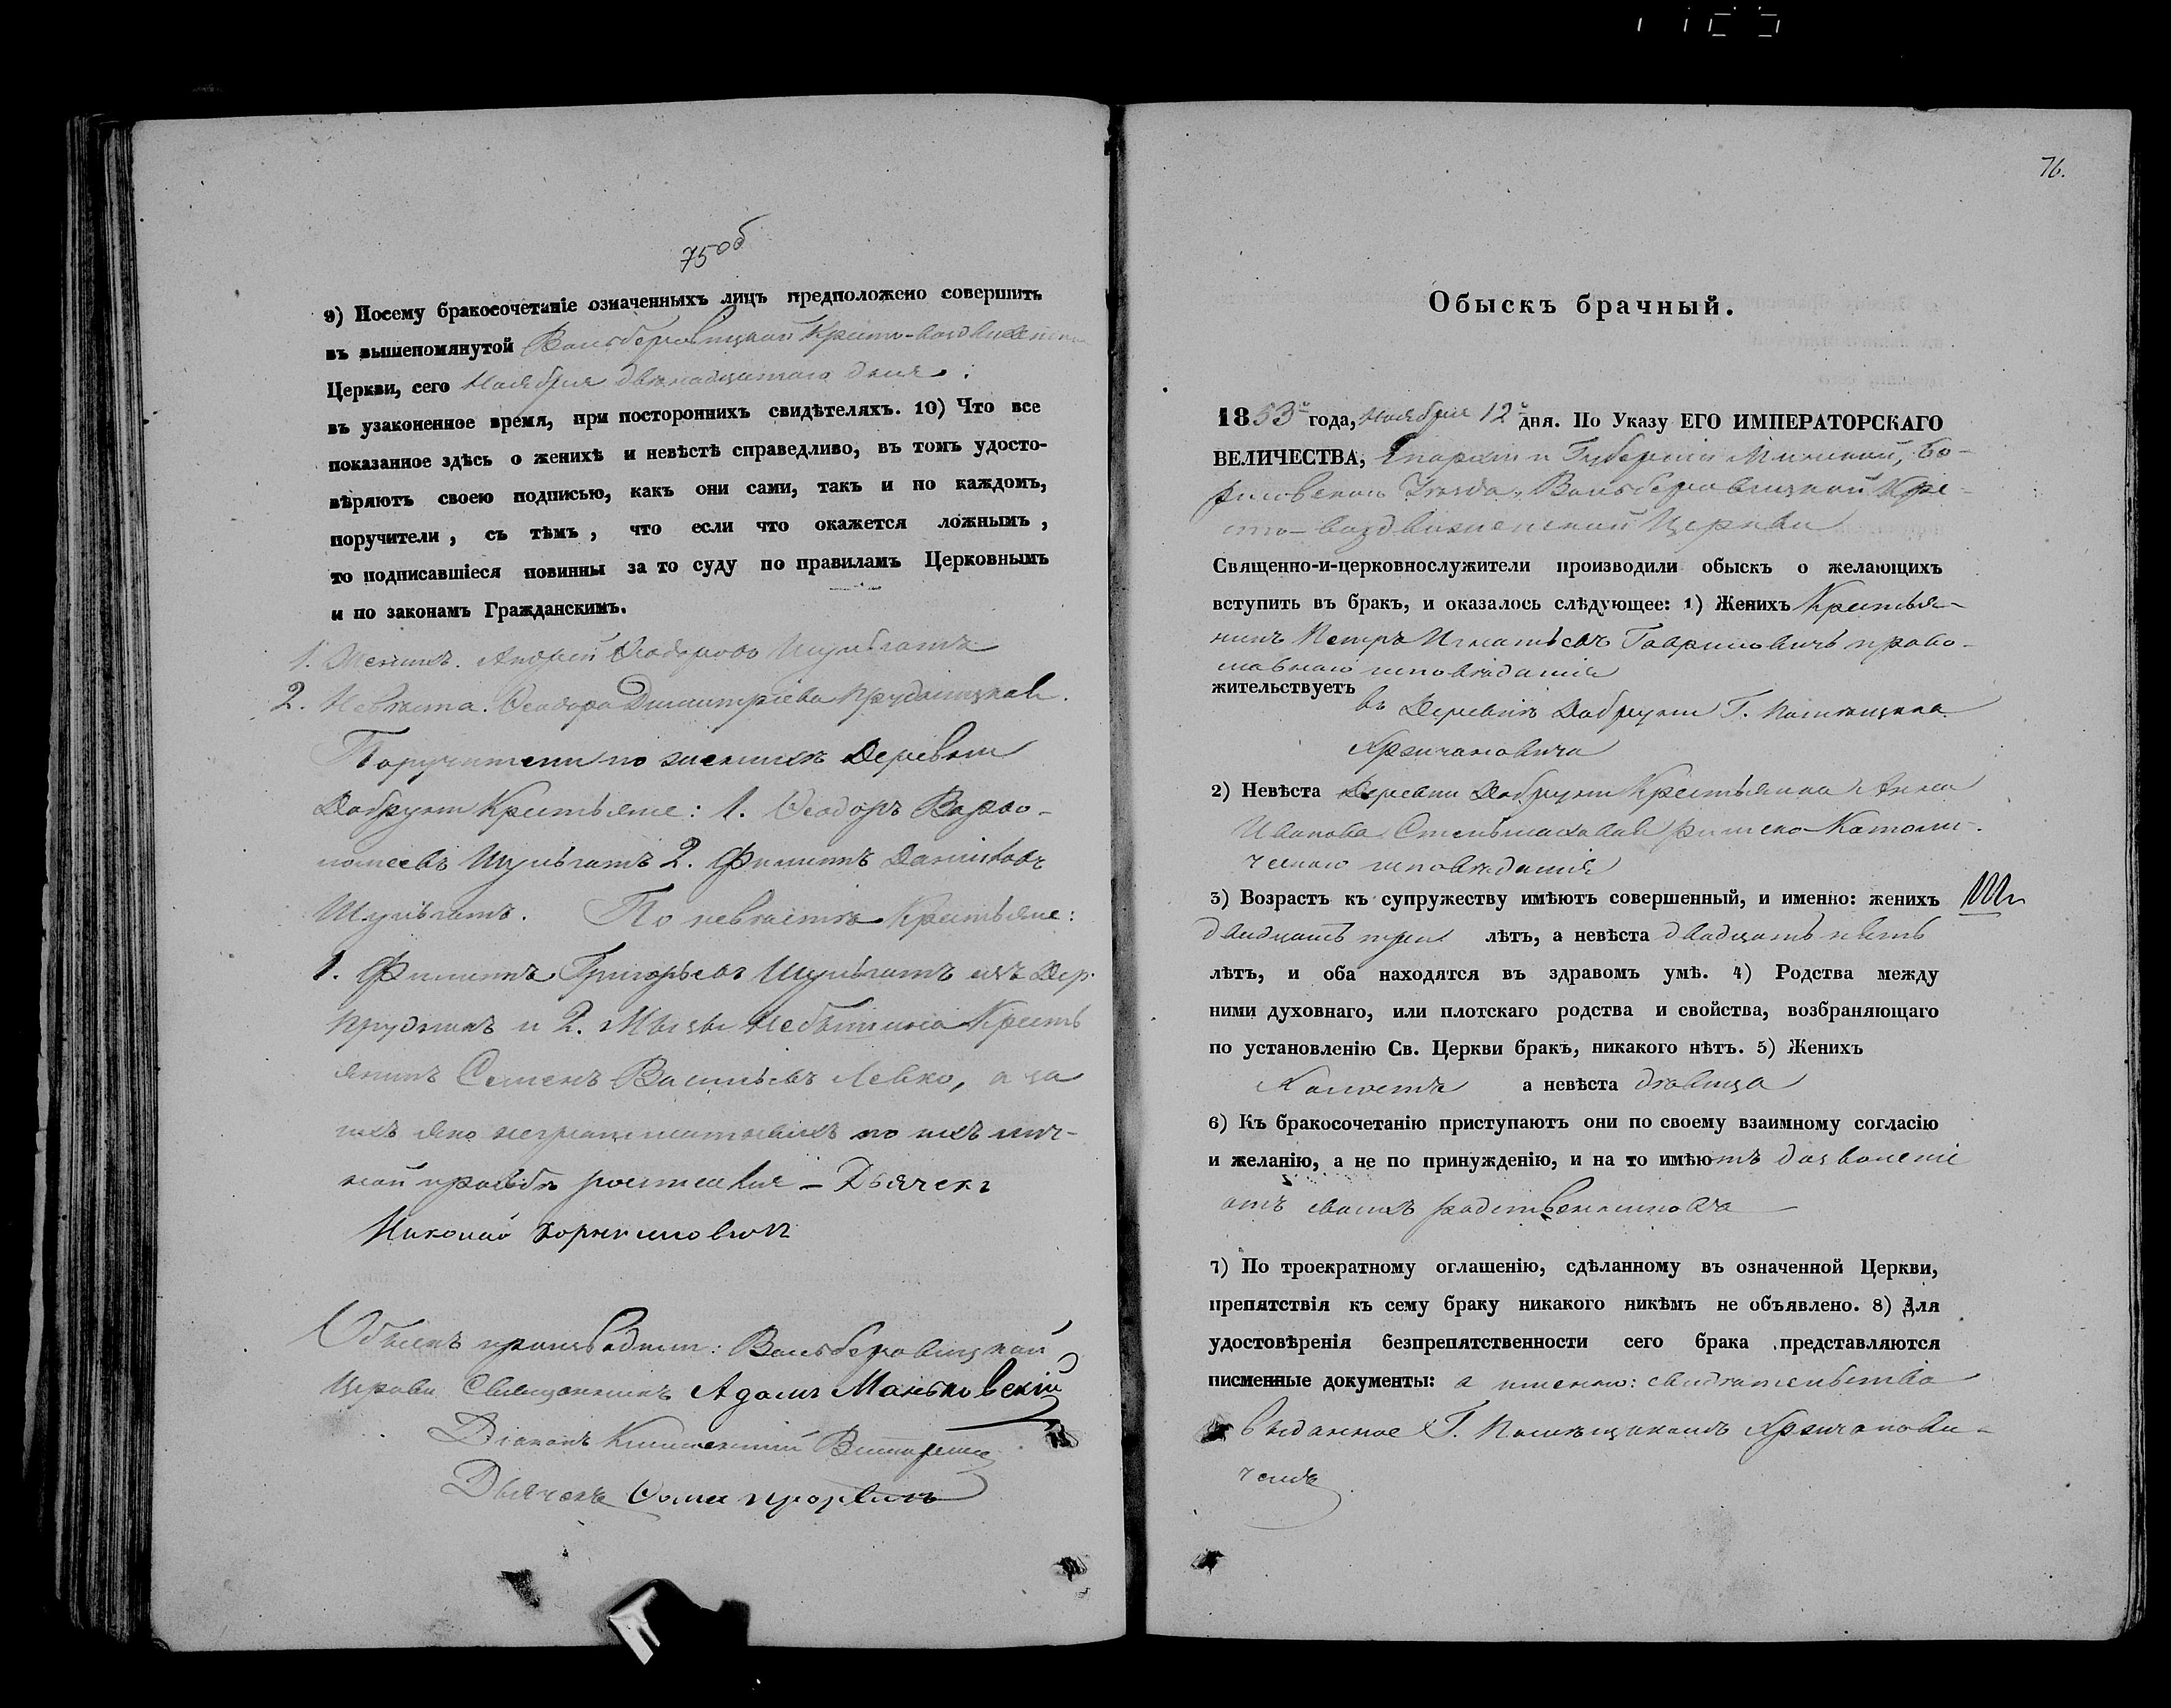 75 об
9) Посему бракосочетаніе означенныхъ лицъ предположено совершить
въ вышепомянутой Вольберовицкой Кресто-воздвиженской
Церкви, сего Ноября двѣнадцатаго дня.
въ узаконенное время, при постороннихъ свидѣтеляхъ. 10) Что все
показанное здѣсь о женихѣ и невѣстѣ справедливо, въ томъ удосто-
вѣряютъ своею подписью, какъ они сами, такъ и по каждомъ,
поручители, съ тѣмъ, что если что окажется ложнымъ,
то подписавшіеся повинны за то суду по правиламъ Церковнымъ
и по законамъ Гражданскимъ.
1. Женихъ. Андрей Ѳеодоровъ Шульгатъ
2. Невѣста. Ѳеодора Димитріева
Поручители по женихѣ Деревни
Добруни Крестьяне: 1. Ѳеодоръ Варѳо-
ломеевъ Шульгатъ 2. Филиппъ Даниловъ
Шульгатъ. По невѣстѣ Крестьяне:
1. Филиппъ Григорьевъ Шульгатъ изъ Дер.
и 2. Крестъ
янинъ Семенъ Васильевъ Левко, а за
ихъ яко неграмотныхъ по ихъ лич-
ной прозьбѣ росписался – Дьячекъ
Николай
Обыскъ производили: Вольберовицкой
Церкви Священникъ Адамъ Маньковскій
Діаконъ
Дьячекъ Ѳома
76.
Обыскъ брачный.
1853го года, Ноября 12го дня. По Указу ЕГО ИМПЕРАТОРСКАГО
ВЕЛИЧЕСТВА, Епархіи и Губерніи Минской, Бо-
рисовскаго Уѣзда, Вольберовицкой Кре-
сто-воздвиженской Церкви
Священно-и-церковнослужители производили обыскъ о желающихъ
вступить въ бракъ, и оказалось слѣдующее: 1) Женихъ Крестья-
нинъ Петръ Игнатьевъ Гавриловичъ право-
славнаго исповѣданія
жительствуетъ
въ Деревнѣ Добруни Г. Помѣщика
Хржчановича
2) Невѣста Деревни Добруни Крестьянка Анна
Иванова Стельмахова римско-Католи-
ческаго исповѣданія
3) Возрастъ къ супружеству имѣютъ совершенный, и именно: женихъ
двадцать три лѣтъ, а невѣста двадцать пять
лѣтъ, и оба находятся въ здравомъ умѣ. 4) Родства между
ними духовнаго, или плотскаго родства и свойства, возбраняющаго
по установленію Св. Церкви бракъ, никакого нѣтъ. 5) Женихъ
Холостъ а невѣста дѣвица
6) Къ бракосочетанію приступаютъ они по своему взаимному согласію
и желанію, а не по принужденію, и на то имѣютъ дозволеніе
отъ своихъ родственниковъ
7) По троекратному оглашенію, сдѣланному въ означенной Церкви,
препятствія къ сему браку никакого никѣмъ не объявлено. 8) Для
удостовѣренія безпрепятственности сего брака представляются
писменные документы: а именно: свидѣтельство
выданное Г. Помѣщикомъ Хржчанови-
чемъ